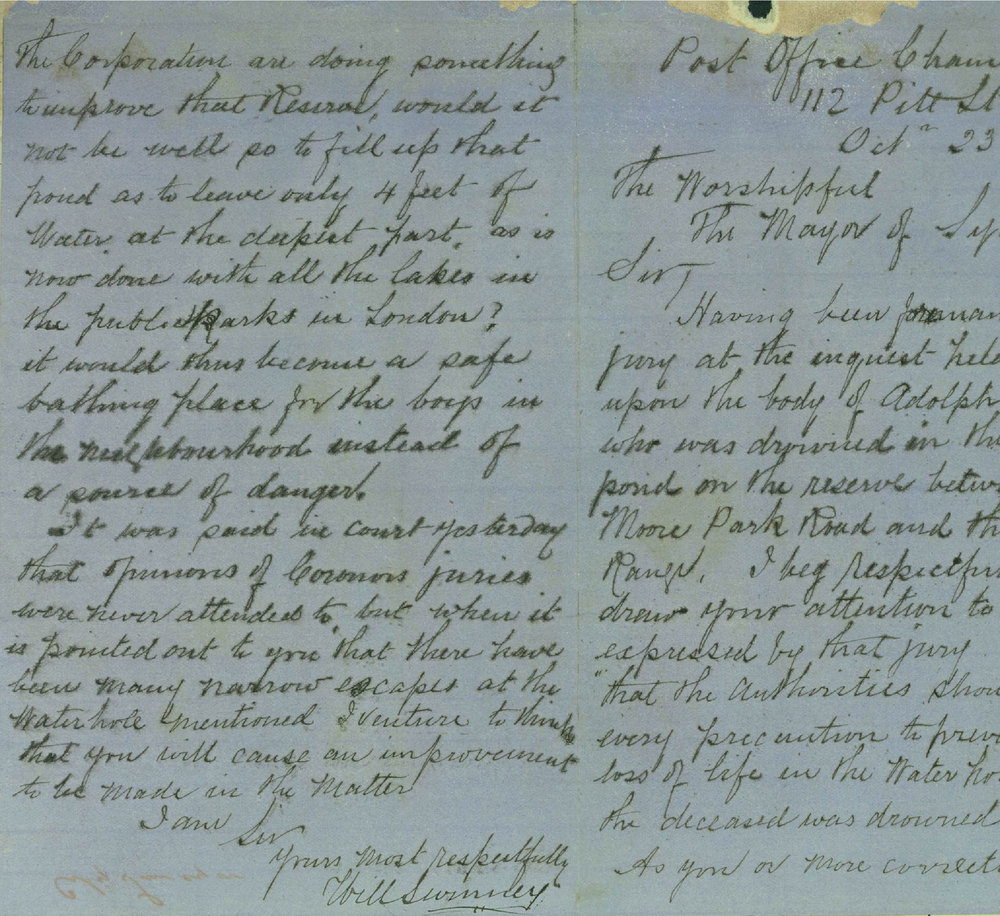 Post Office Cham
112 Pitt St
Octr 23
The Worshipful
The Mayor of Sy
Sir,
Having been foreman
jury at the inquest hel
upon the body of Adolph
who was drowned in the
pond on the reserve betwe
Moore Park Road and th
Range. I beg respectfu
draw your attention to
expressed by that jury
"that the authorities shou
every precaution to preve
loss of life in the Water ho
the deceased was drowned
As you or more correct
the Corporation are doing something
to improve that Reserve, would it
not be well so to fill up that
pond as to leave only 4 feet of
Water at the deepest part, as is
now done with all the lakes in
the public Parks in London?
it would thus become a safe
bathing place for the boys in
the neighbourhood instead of
a source of danger.
It was said in court yesterday
that opinions of Coronors juries
were never attended to, but when it
is pointed out to you that there have
been many narrow escapes at the
Waterhole mentioned I venture to think
that you will cause an improvement
to be made in the matter
I am
Sir
Yours most respectfully
Will Swinney